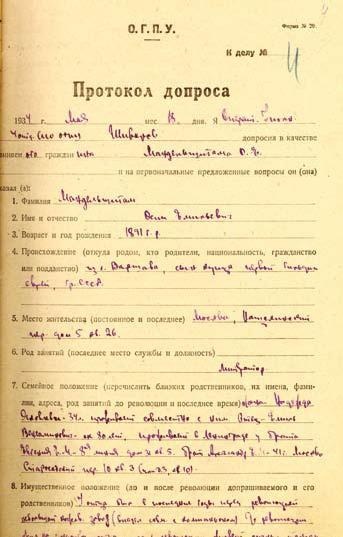 О. Г. П. У.
Форма № 20.
К делу №
4
Протокол допроса
1934 г. мая мес 18 дня. Я
Шиваров допросив в качестве
граждани Мандельштама О. Э.
и на первоначальные предложенные вопросы он (она)
казал (а):
1. Фамилия Мандельштам
2. Имя и отчество Осип Эмильевич
3. Возраст и год рождения 1891 г. р.
4. Происхождение (откуда родом, кто родители, национальность, гражданство
или подданство) из г. Варшава, сын купца первой гильдии
еврей, гр. СССР.
5. Место жительства (постоянное и последнее) Москва, Нащокинский
пер. дом 5 кв. 26.
6. Род занятий (последнее место службы и должность)
литератор
7. Семейное положение (перечислить близких родственников, их имена, фами-
лии, адреса, род занятий до революции и последнее время) жена Надежда
Яковлевна 34 л. проживает совместно с ним. Отец Эмиль
Вениаминович ок 80 лет, проживает в Ленинграде у брата
Евгения Э. М. 8 линия дом 31 кв. 5. Брат Александр Э. 41 г. Москва
Старосадский пер. 10 кв. 3
8. Имущественное положение (до и после революции допрашиваемого и его
родственников) У отца был в последние годы перед революцией
небольшой завод До революции